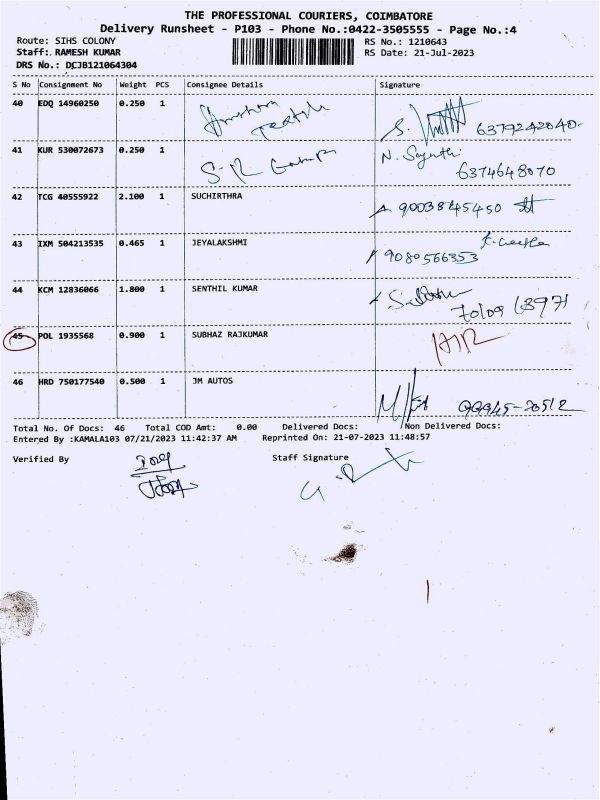 THE PROFESSIONAL COURIERS, COIMBATORE
Delivery Runsheet - P103 - Phone No.:0422-3505555 - Page No.:4
Route: SIHS COLONY RS No.: 1210643
Staff: RAMESH KUMAR RS Date: 21-Jul-2023
DRS No.: DCJB121064304
S No Consignment No Weight PCS Consignee Details Signature
40 EDQ 14960250 0.250 1 6379242040
41 KUR 530072673 0.250 1 N.
6374648070
42 TCG 40555922 2.100 1 SUCHIRTHRA 9003845450
43 IXM 504213535 0.465 1 JEYALAKSHMI 9080566353
44 KCM 12836066 1.800 1 SENTHIL KUMAR
45 POL 1935568 0.900 1 SUBHAZ RAJKUMAR
46 HRD 750177540 0.500 1 JM AUTOS
Total No. Of Docs: 46 Total COD Amt: 0.00 Delivered Docs: Non Delivered Docs:
Entered By :KAMALA103 07/21/2023 11:42:37 AM Reprinted On: 21-07-2023 11:48:57
Verified By Staff Signature